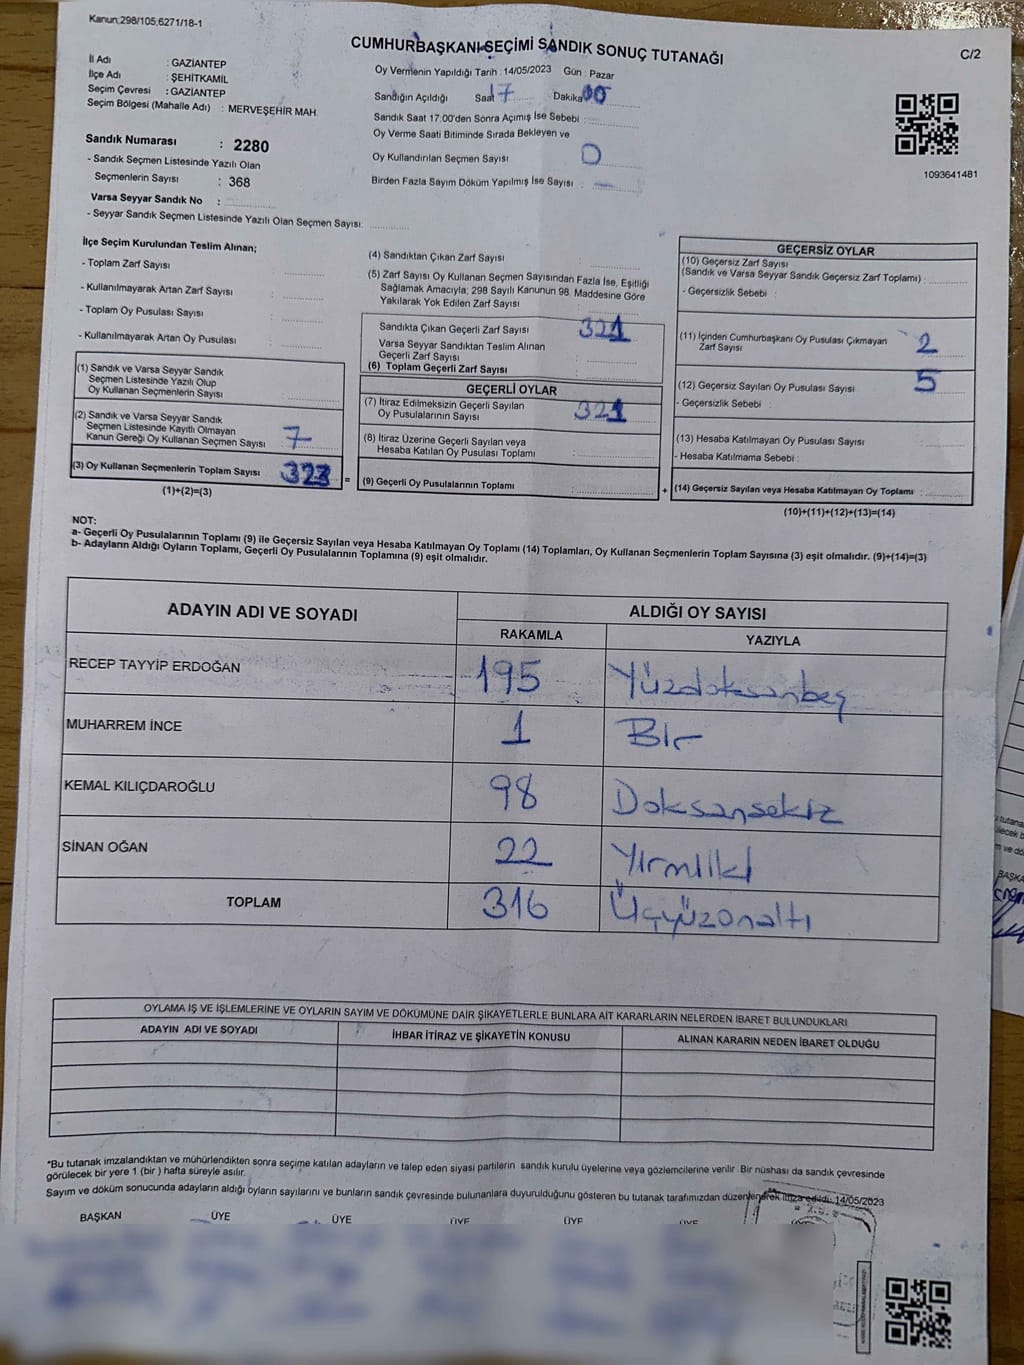 Kanun;298/105;6271/18-1
CUMHURBAŞKANI SEÇİMİ SANDIK SONUÇ TUTANAĞI
C/2
İl Adı : GAZİANTEP
İlçe Adı : ŞEHİTKAMİL
Seçim Çevresi : GAZİANTEP
Seçim Bölgesi (Mahalle Adı) : MERVEŞEHİR MAH.
Sandık Numarası : 2280
- Sandık Seçmen Listesinde Yazılı Olan
Seçmenlerin Sayısı : 368
Varsa Seyyar Sandık No :
- Seyyar Sandık Seçmen Listesinde Yazılı Olan Seçmen Sayısı:
Oy Vermenin Yapıldığı Tarih : 14/05/2023 Gün : Pazar
Sandığın Açıldığı Saat 17 Dakika 00
Sandık Saat 17.00'den Sonra Açımış İse Sebebi :
Oy Verme Saati Bitiminde Sırada Bekleyen ve
Oy Kullandırılan Seçmen Sayısı 0
Birden Fazla Sayım Döküm Yapılmış İse Sayısı : —
1093641481
İlçe Seçim Kurulundan Teslim Alınan;
- Toplam Zarf Sayısı
- Kullanılmayarak Artan Zarf Sayısı
- Toplam Oy Pusulası Sayısı
- Kullanılmayarak Artan Oy Pusulası
(1) Sandık ve Varsa Seyyar Sandık
Seçmen Listesinde Yazılı Olup
Oy Kullanan Seçmenlerin Sayısı
(2) Sandık ve Varsa Seyyar Sandık
Seçmen Listesinde Kayıtlı Olmayan
Kanun Gereği Oy Kullanan Seçmen Sayısı 7
(3) Oy Kullanan Seçmenlerin Toplam Sayısı 323 =
(1)+(2)=(3)
(4) Sandıktan Çıkan Zarf Sayısı :
(5) Zarf Sayısı Oy Kullanan Seçmen Sayısından Fazla İse, Eşitliği
Sağlamak Amacıyla; 298 Sayılı Kanunun 98. Maddesine Göre
Yakılarak Yok Edilen Zarf Sayısı
Sandıkta Çıkan Geçerli Zarf Sayısı 321
Varsa Seyyar Sandıktan Teslim Alınan
Geçerli Zarf Sayısı :
(6) Toplam Geçerli Zarf Sayısı :
GEÇERLİ OYLAR
(7) İtiraz Edilmeksizin Geçerli Sayılan
Oy Pusulalarının Sayısı 321
(8) İtiraz Üzerine Geçerli Sayılan veya
Hesaba Katılan Oy Pusulası Toplamı :
(9) Geçerli Oy Pusulalarının Toplamı : +
GEÇERSİZ OYLAR
(10) Geçersiz Zarf Sayısı
(Sandık ve Varsa Seyyar Sandık Geçersiz Zarf Toplamı) :
- Geçersizlik Sebebi :
(11) İçinden Cumhurbaşkanı Oy Pusulası Çıkmayan
Zarf Sayısı 2
(12) Geçersiz Sayılan Oy Pusulası Sayısı 5
- Geçersizlik Sebebi :
(13) Hesaba Katılmayan Oy Pusulası Sayısı :
- Hesaba Katılmama Sebebi :
(14) Geçersiz Sayılan veya Hesaba Katılmayan Oy Toplamı :
(10)+(11)+(12)+(13)=(14)
NOT:
a- Geçerli Oy Pusulalarının Toplamı (9) ile Geçersiz Sayılan veya Hesaba Katılmayan Oy Toplamı (14) Toplamları, Oy Kullanan Seçmenlerin Toplam Sayısına (3) eşit olmalıdır. (9)+(14)=(3)
b- Adayların Aldığı Oyların Toplamı, Geçerli Oy Pusulalarının Toplamına (9) eşit olmalıdır.
ADAYIN ADI VE SOYADI ALDIĞI OY SAYISI
RAKAMLA YAZIYLA
RECEP TAYYİP ERDOĞAN 195 Yüzdoksanbeş
MUHARREM İNCE 1 Bir
KEMAL KILIÇDAROĞLU 98 Doksansekiz
SİNAN OĞAN 22 Yirmiiki
TOPLAM 316 Üçyüzonaltı
OYLAMA İŞ VE İŞLEMLERİNE VE OYLARIN SAYIM VE DÖKÜMÜNE DAİR ŞİKAYETLERLE BUNLARA AİT KARARLARIN NELERDEN İBARET BULUNDUKLARI
ADAYIN ADI VE SOYADI İHBAR İTİRAZ VE ŞİKAYETİN KONUSU ALINAN KARARIN NEDEN İBARET OLDUĞU
*Bu tutanak imzalandıktan ve mühürlendikten sonra seçime katılan adayların ve talep eden siyasi partilerin sandık kurulu üyelerine veya gözlemcilerine verilir. Bir nüshası da sandık çevresinde
görülecek bir yere 1 (bir ) hafta süreyle asılır.
Sayım ve döküm sonucunda adayların aldığı oyların sayılarını ve bunların sandık çevresinde bulunanlara duyurulduğunu gösteren bu tutanak tarafımızdan düzenlenerek imza edildi. 14/05/2023
BAŞKAN ÜYE ÜYE ÜYE ÜYE ÜYE